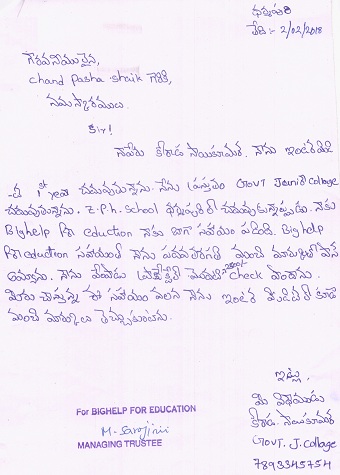 ధర్మపురి
తేది:- 2/02/2018
గౌరవనీయులైన,
chand pasha shaik గారికి,
నమస్కారములు.
Sir!
నాపేరు కీరాడ సాయికుమార్. నేను ఇంటర్మీడి
-ట్ 1st year చదువుచున్నాను. నేను ప్రస్తుతం GOVT Jouniar Collage
చదువుచున్నాను. Z.P.h. School ధర్మపురి లో చదువుకున్నప్పుడు. నాకు
Bighelp for eduction నాకు బాగా సహాయం పడింది. Big help
for eduction సహాయంతో నేను పదవతరగతి మంచి మార్కులతో పాస్
అయ్యాను. నేను check పొందాను.
మీరు చేస్తున్న ఈ సహాయం వలన నేను ఇంటర్ మీడియట్ లో కూడా
మంచి మార్కులు తెచ్చుకుంటాను.
ఇట్లు,
మీ విధేయుడు
కీరాడ. సాయికుమార్
GOVT. J. Collage
7893345754
For BIGHELP FOR EDUCATION
M. Sarojini
MANAGING TRUSTEE